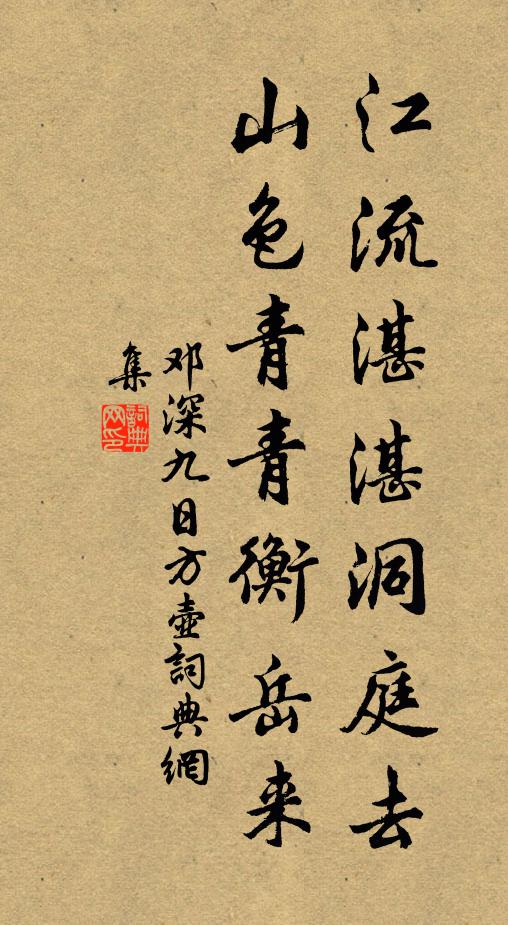 江流湛湛洞庭去
山色青青衡岳来
邓深九日方壶詞典網
集
詞典网印